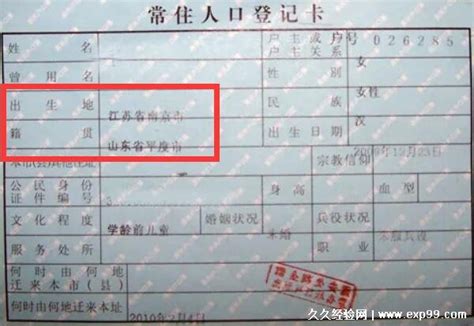 常住人口登记卡
姓名
户主或
户主关系
026285
女
曾用名
性别
女性
出生地
江苏省南京市
民族
汉
籍贯
山东省平度市
出生日期
2006年12月23日
本市(县)其他住址
宗教信仰
公民身份
证件编号
3
身高
血型
文化程度
学龄前儿童
婚姻状况
未婚
兵役状况
未服兵役
服务处所
职业
何时由何地
迁来本市(县)
何时由何地迁来本址
2010年2月4日
久久经验网 | www.exp99.com